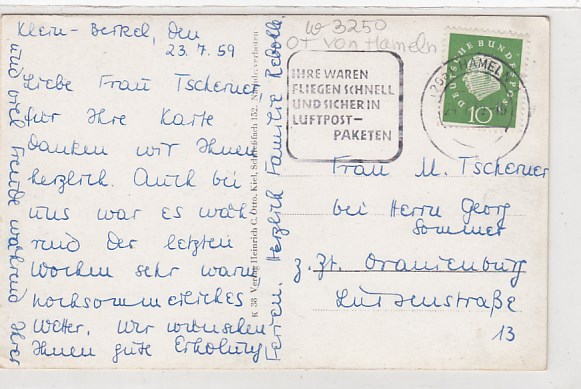 Klein-Berkel, den
23.7.59
Liebe Frau Tscherner
für Ihre Karte
danken wir Ihnen
herzlich. Auch bei
uns war es wäh-
rend der letzten
Wochen sehr warm
hochsommerliches
Wetter. Wir wünschen
Ihnen gute Erholung
und viel Freude während Ihrer
Ferien. Herzlich Familie
K 38 Verlag Heinrich C. Otto, Kiel, Schließfach 152. Nachdr. verboten
W 3250
OT von Hameln
IHRE WAREN
FLIEGEN SCHNELL
UND SICHER IN
LUFTPOST-
PAKETEN
HAMELN
DEUTSCHE BUNDESPOST
10
Frau M. Tscherner
bei Herrn Georg
Sommer
z. Zt. Oranienburg
Luisenstraße
13